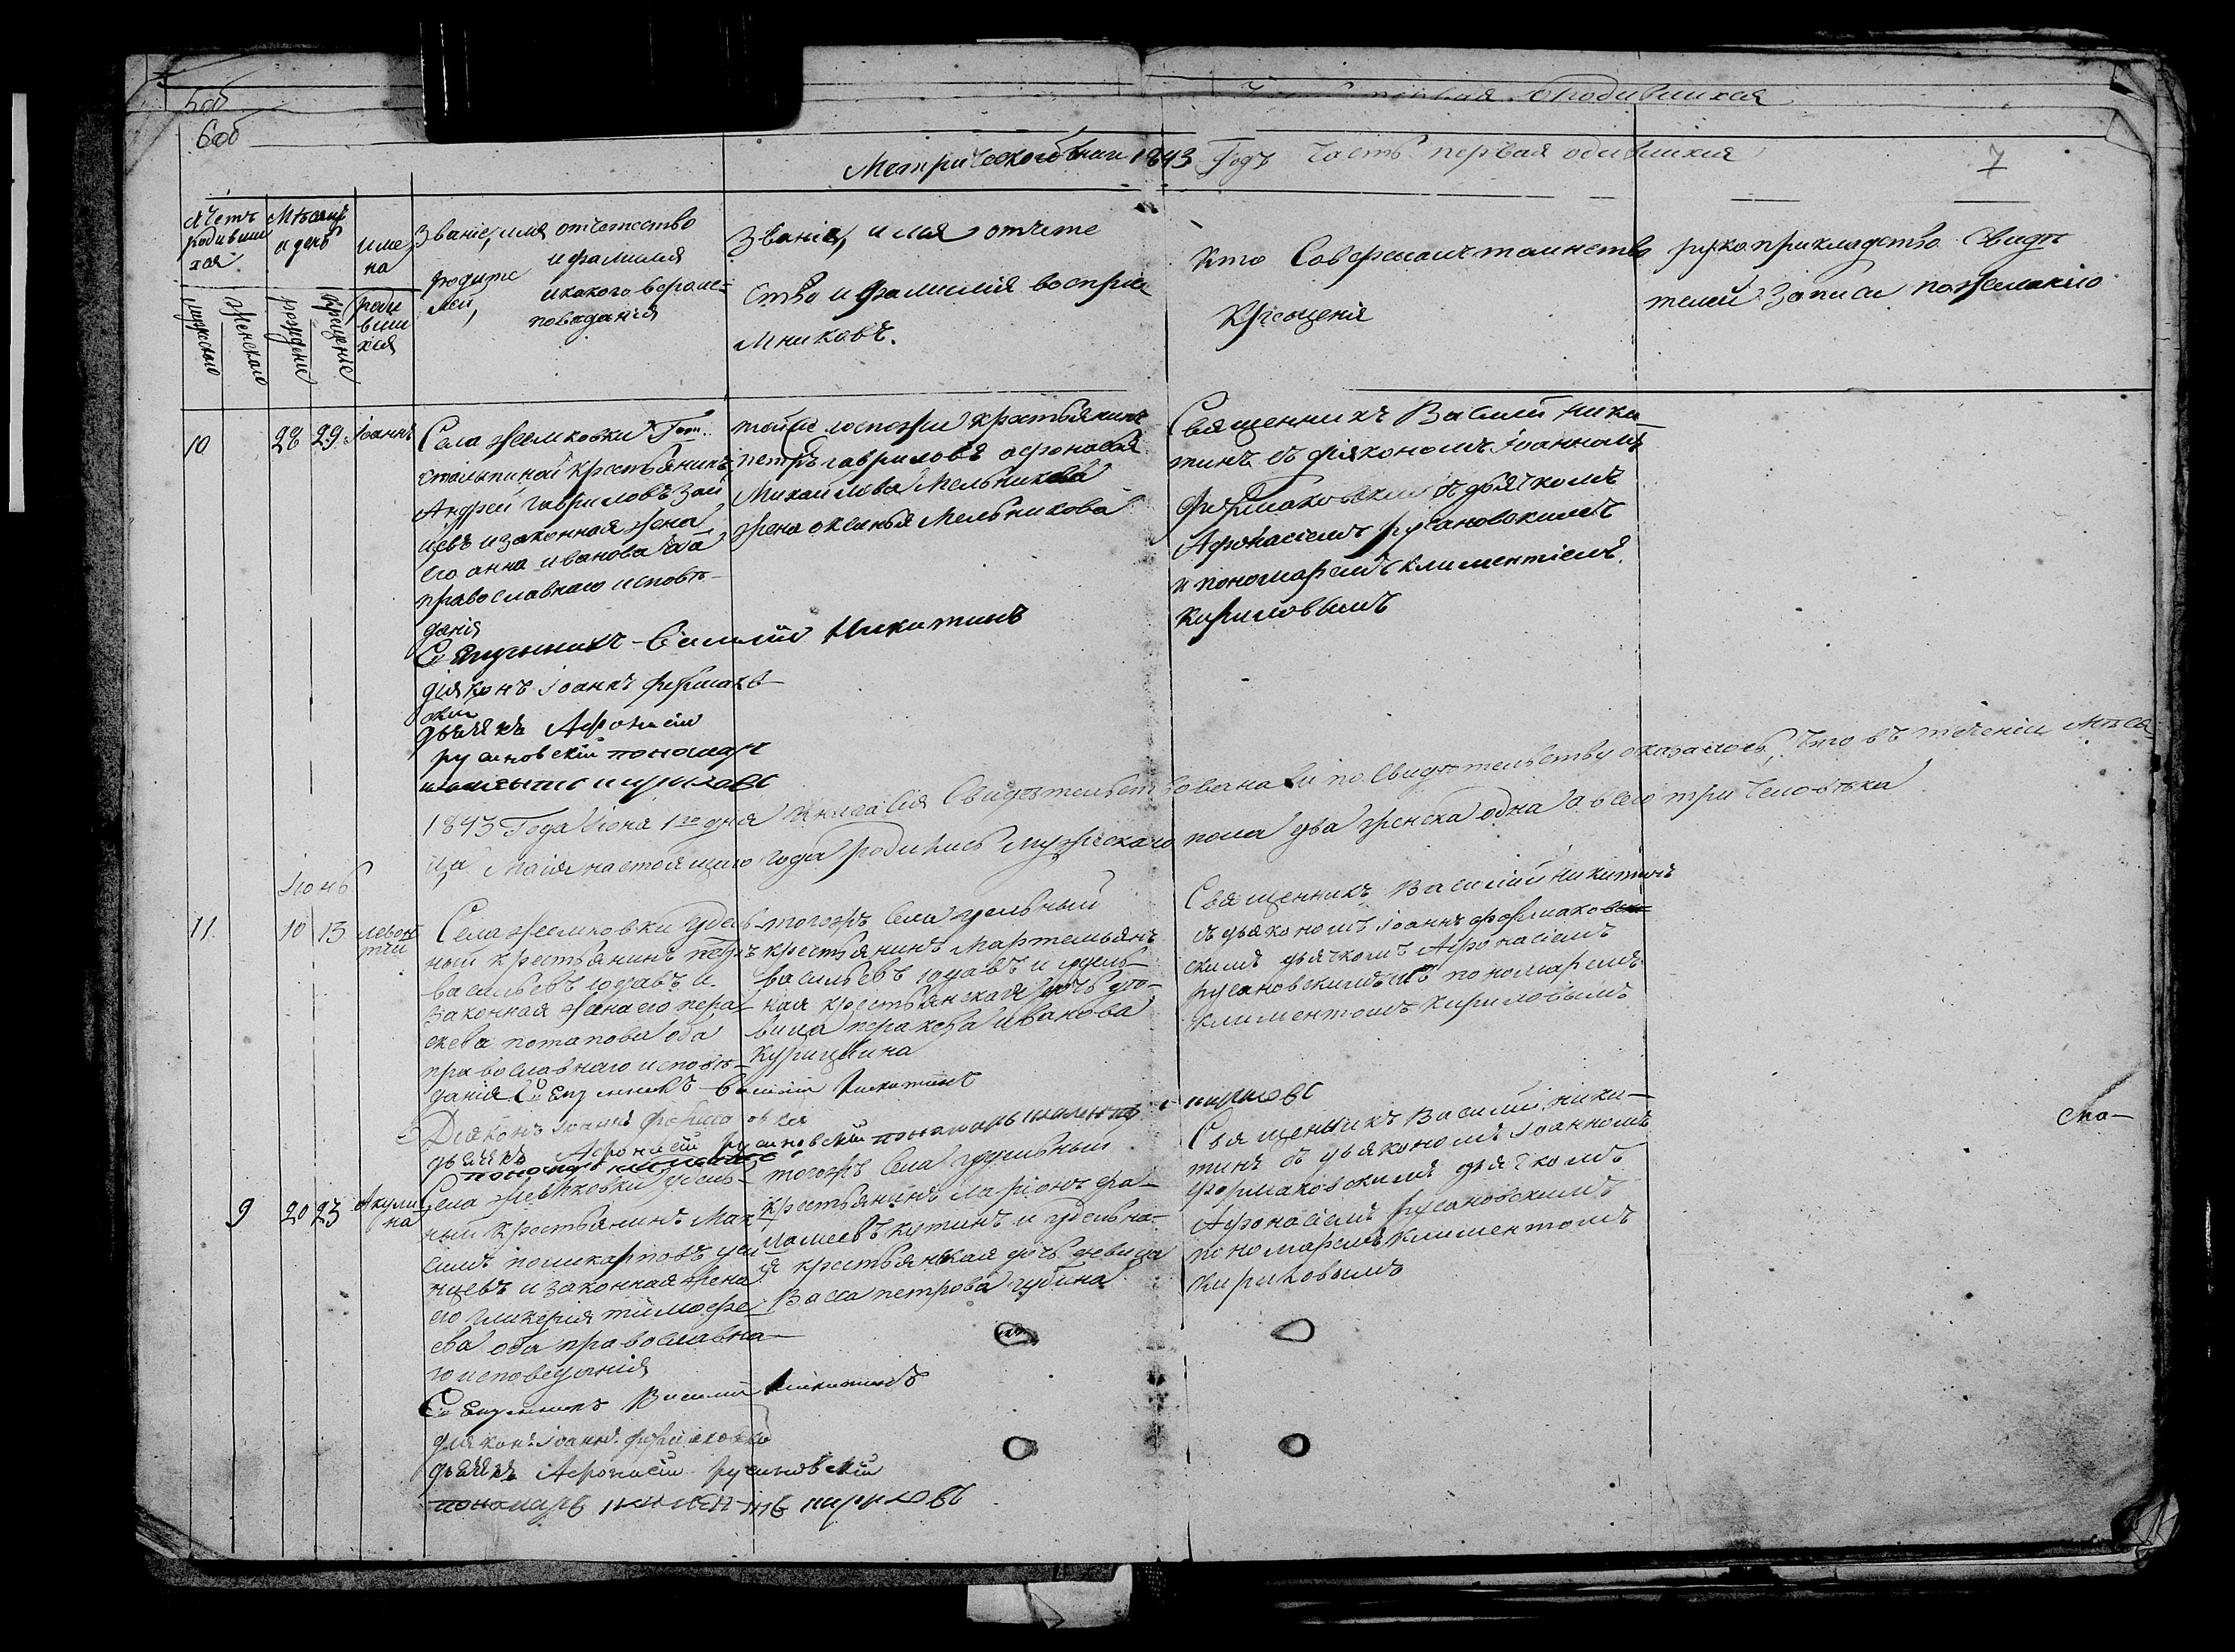 5об
6об
первая Ородившихся
Метрической книги 1843 Годъ Часть первая одившихся
7
Счетъ родивши хся
мужескаго
женскаго
Мѣсяцъ и день
рожденіе
крещеніе
име
на
роди
вши
хся
Званіе, имя отчетство
и фамилія
родите
лей,
икакого вероис
поведанія
Званіе, и имя отчете
ство и фамилія воспріе
мниковъ.
Кто Совершалъ таинство
Крещенія
рукоприкладство Свидѣ
телей Записи пожеланію
10
28 29 Іоаннъ
Села жемковки Гос..
столыпиной Крестьянинъ
Андрей Гавриловъ Зай
цевъ изаконная жена
его анна иванова оба
православнаго исповѣ
данія
тойже госпожи крестьянинъ
петръ гавриловъ афонасья
Михайлова Мельникова
жена оксинья Мельникова
Священникъ Василій Ники
тинъ съ діякономъ Іоанномъ
Фармаковским съ дьячкомъ
Афонасіемъ русановскимъ
и пономаремъ климентіемъ
кириловымъ
Священникъ Василій Никитинъ
діяконъ Іоаннъ Фармаков
ски
дьячкъ Афонасій
русановскій пономарь
климентъ кириловъ
1843 Года Іюня 1го дня книга Сія Свидѣтельствована и по Свидѣтельству оказалось, что въ теченіи Мѣся
ца Маія настоящаго года родились мужескаго пола два женска одна а всего три человѣка
Іюнь
11 10 13 левон
тій
Села жемковки удель
ный крестьянинъ петръ
васильевъ юдавъ и
законная жена его пера
скева потапова оба
православнаго исповѣ
данія
тогожъ села удельный
крестьянинъ Мартемьянъ
васильевъ юдавъ и удель
ная крестьянская дочь дѣ
вица пераскева иванова
курицына
Священникъ Василий никитинъ
съ дьякономъ Іоаннъ фармаковск
скимъ дьячкомъ Афонасіемъ
русановскимъ съ пономаремъ
климентомъ кириловымъ
Священникъ Василій Никитинъ
Діяконъ Іоаннъ Фармаковскій
дьячкъ Афонасій русановскій пономарь климентъ кириловъ
9 20 23 Акули
на
Села жемковки удель
ный крестьянинъ Мак
симъ поликарповъ
и законная жена
его гликерія тимофе
ева оба православна
го исповеданія
тогожъ села удельный
крестьянинъ ларіонъ
кутинъ и удельна
я крестьянская дочь девица
Васса петрова губина
Священникъ Василий ники
тинъ съ дьякономъ Іоанномъ
формаковскимъ дьячкомъ
Афонасіемъ русановскимъ
пономаремъ климентомъ
кириловымъ
Священникъ Василий Никитинъ
діяконъ Іоаннъ Фармаковски
дьячкъ Афонасій русановскій
пономарь климентъ кириловъ